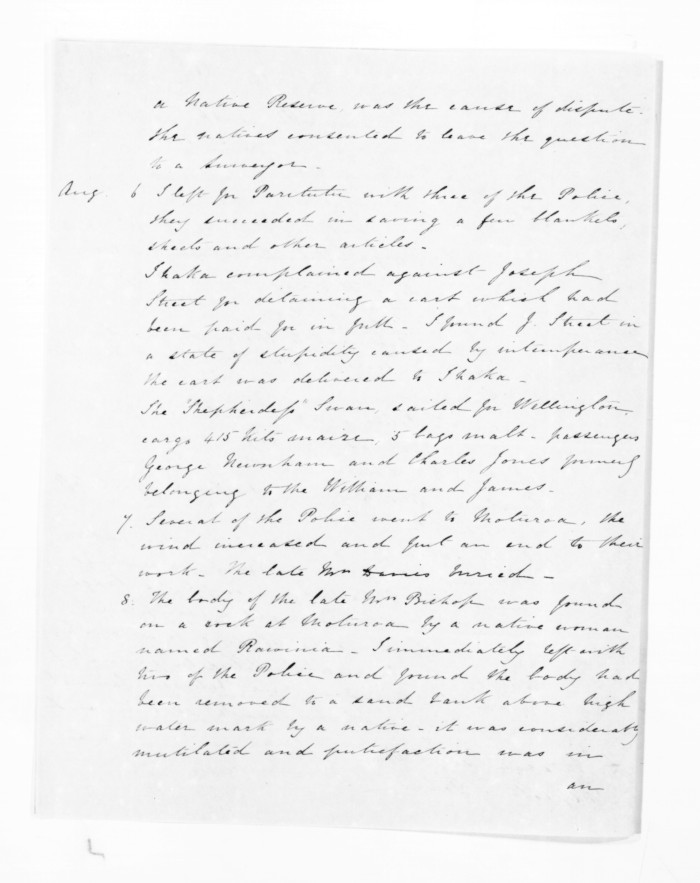 a Native Reserve, was the cause of dispute.
the natives consented to leave the question
to a surveyor -
Aug. 6 I left for Paritutu with three of the Police,
they succeeded in saving a few blankets,
sheets and other articles -
Ihaka complained against Joseph
Street for detaining a cart which had
been paid for in full - I found J. Street in
a state of stupidity caused by intemperance
the cart was delivered to Ihaka -
The "Shepherdess" Swan, sailed for Wellington,
cargo 415 kits maize, 5 bags malt - passengers
George Newnham and Charles Jones formerly
belonging to the William and James -
7. Several of the Police went to Moturoa, the
wind increased and put an end to their
work - the late Mrs Davies buried -
8. The body of the late Mrs Bishop was found
on a rock at Moturoa by a native woman
named Rawinia - I immediately left with
two of the Police and found the body had
been removed to a sand bank above high
water mark by a native - it was considerably
mutilated and putrefaction was in
an